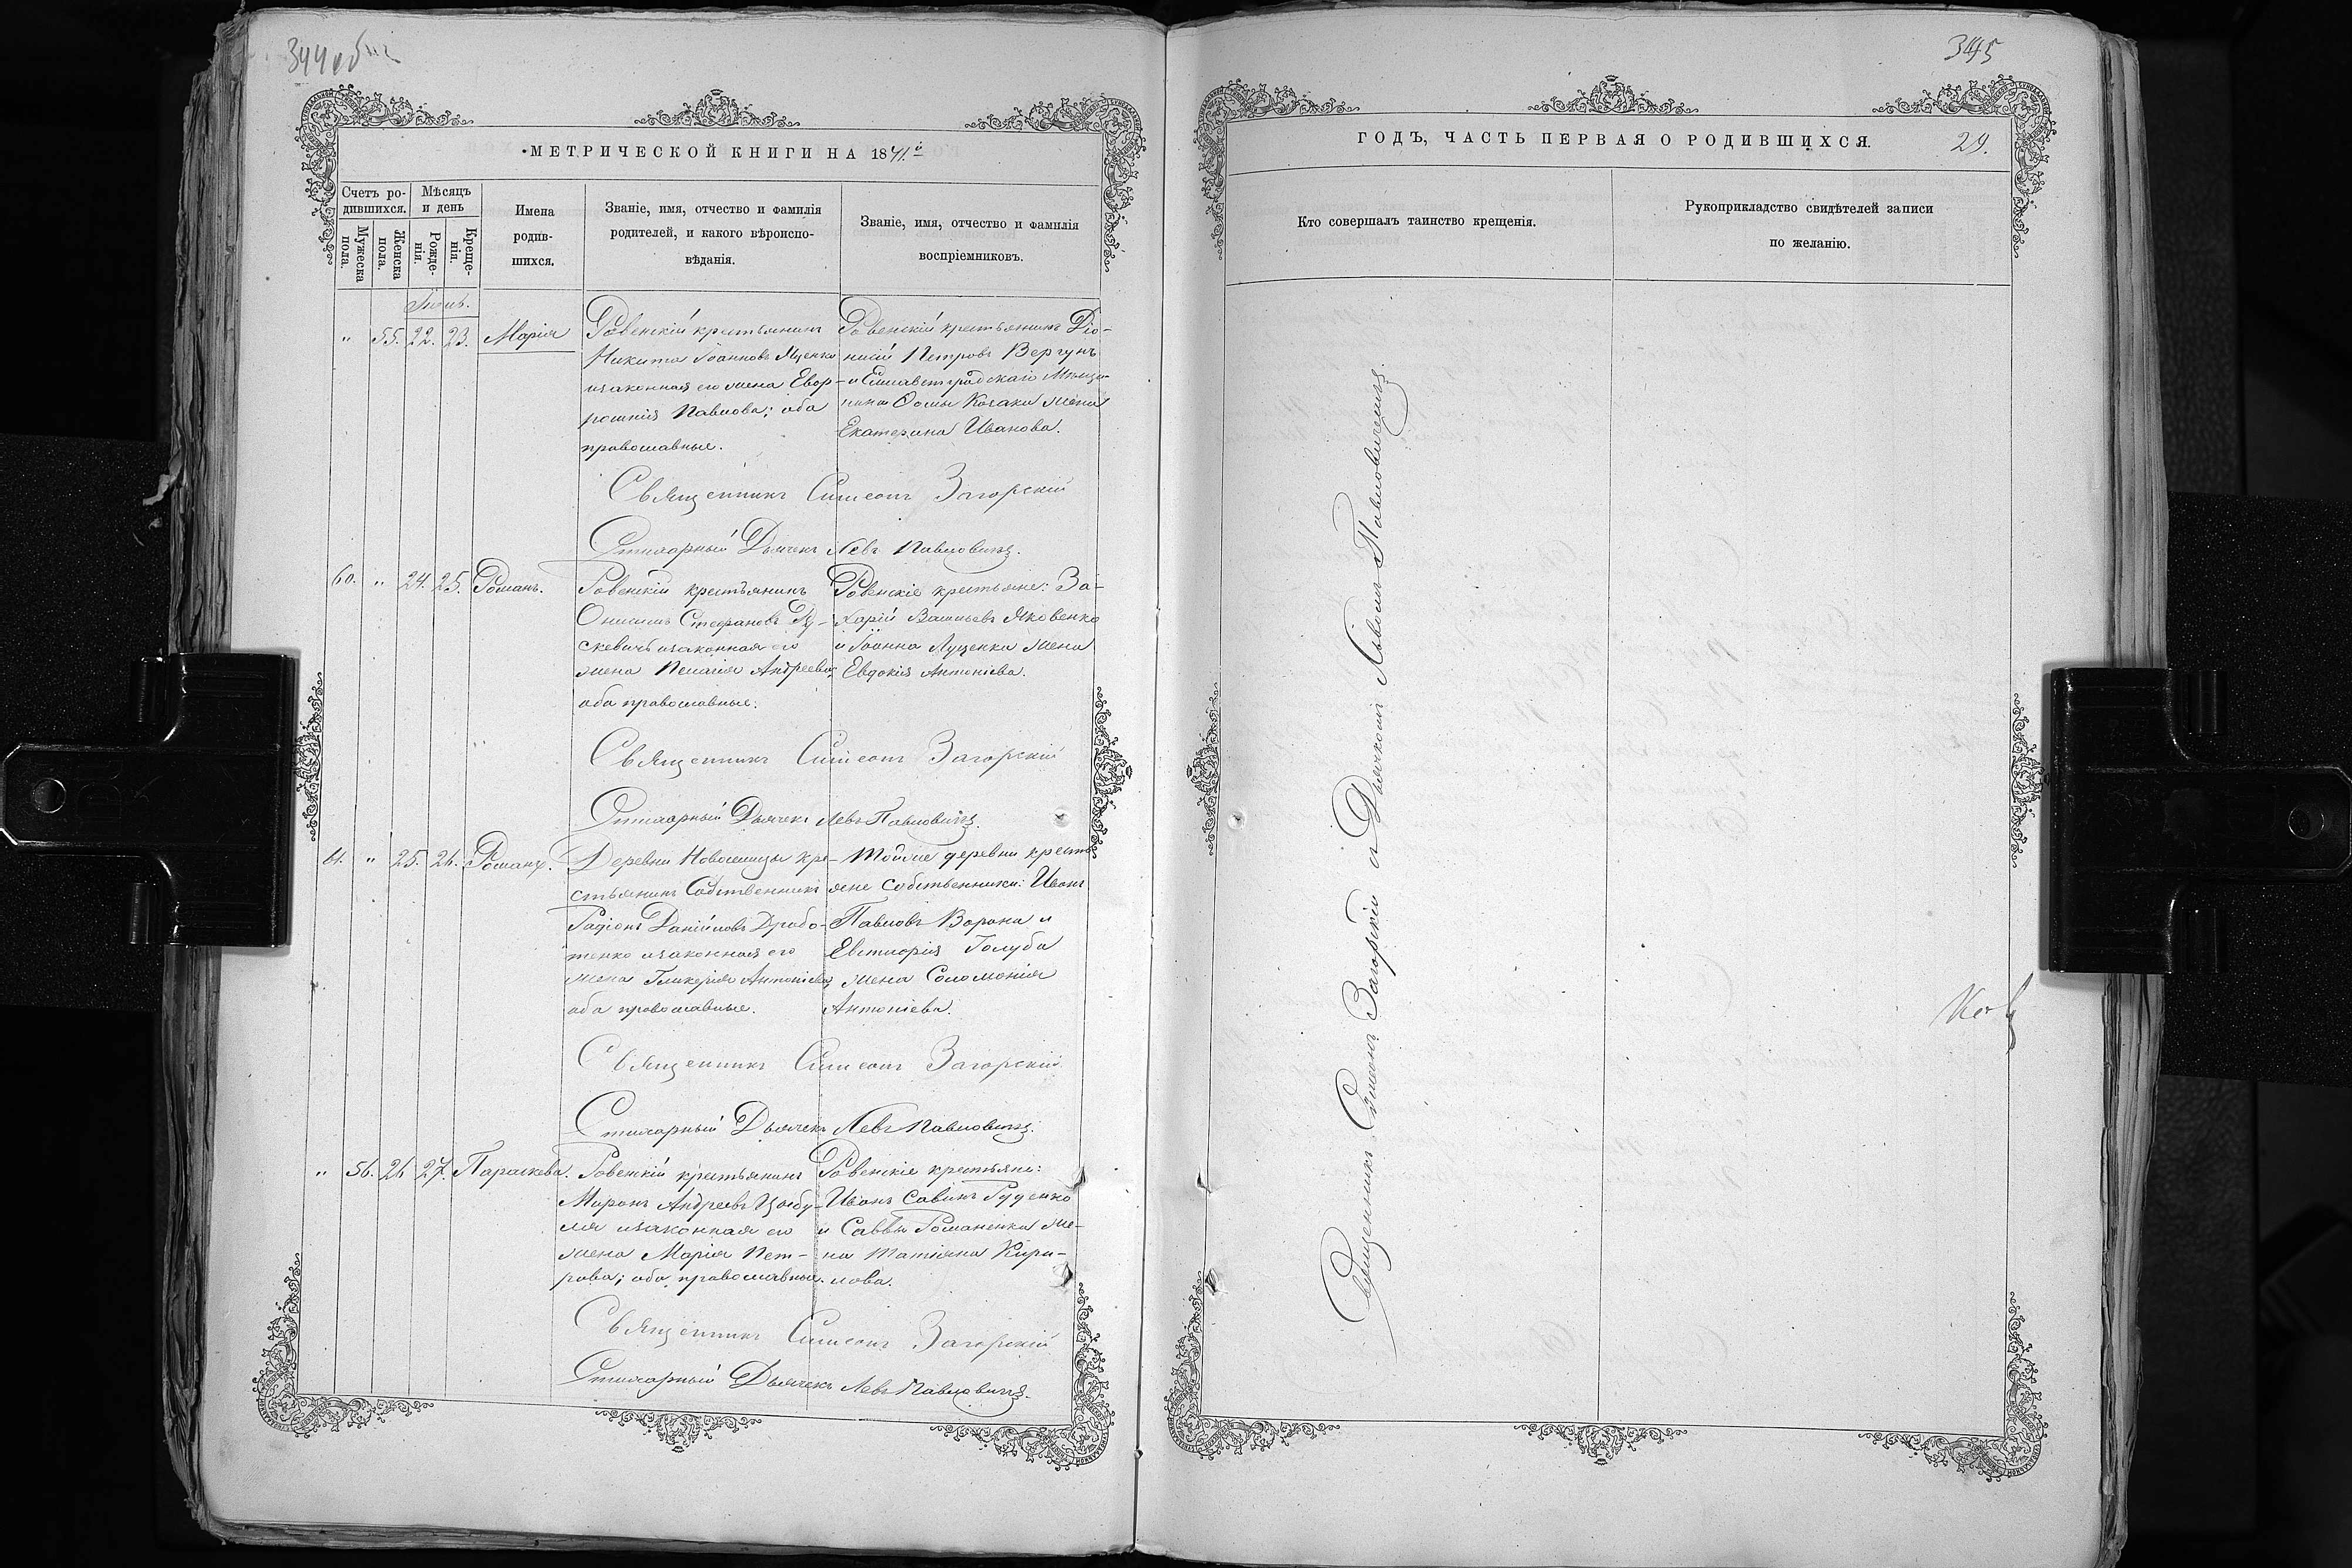 344 об
МЕТРИЧЕСКОЙ КНИГИ НА 1871.й
Счетъ ро-
дившихся.
Мѣсяцъ
и день
Мужеска пола.
Женска пола.
Рожде-
нія.
Креще-
нія.
Имена
родив-
шихся.
Званіе, имя, отчество и фамилія
родителей, и какого вѣроиспо-
вѣданія.
Званіе, имя, отчество и фамилія
воспріемниковъ.
" 55. 22. 23. Марія
Ровенскій крестьянинъ
Никита Іоанновъ Яценко
и законная его жена Евф-
росинія Павлова; оба
православные.
Ровенскій крестьянинъ Діо-
нисій Петровъ Вергунъ
и Елисаветградскаго Мѣща-
нина Ѳомы Козака жена
Екатерина Иванова.
Священникъ Симеонъ Загорскій
Стихарный Дьячекъ Левъ Павловичъ.
60. " 24. 25. Романъ.
Ровенскій крестьянинъ
Онисимъ Стефановъ
скевичъ и законная его
жена Пелагія Андреева;
оба православные.
Ровенскіе крестьяне: За-
харій Васильевъ Яковенко
и Іоанна Луценка жена
Евдокія Антоніева.
Священникъ Симеонъ Загорскій
Стихарный Дьячекъ Левъ Павловичъ.
61. " 25. 26. Романъ.
Деревни Новоселицы кре-
стьянинъ Собственникъ
Радіонъ Даніиловъ Дробо-
тенко и законная его
жена Гликерія Антоніева,
оба православные.
Тойже деревни кресть
яне собственники: Иванъ
Павловъ Ворона и
Евтихія Голуба
жена Соломонія
Антоніева.
Священникъ Симеонъ Загорскій
Стихарный Дьячекъ Левъ Павловичъ.
" 56. 26 27. Параскева.
Ровенскій крестьянинъ
Миронъ Андреевъ Цыбу-
ля и законная его
жена Марія Пет-
рова; оба православные.
Ровенскіе крестьяне:
Иванъ Савинъ Руденко
и Саввы Романенка же-
на Татіяна Кири-
лова.
Священникъ Симеонъ Загорскій
Стихарный Дьячекъ Левъ Павловичъ.
345
ГОДЪ, ЧАСТЬ ПЕРВАЯ О РОДИВШИХСЯ.
29.
Кто совершалъ таинство крещенія.
Рукоприкладство свидѣтелей записи
по желанію.
Священникъ Симеонъ Загорскій съ Дьячкомъ Львомъ Павловичемъ.